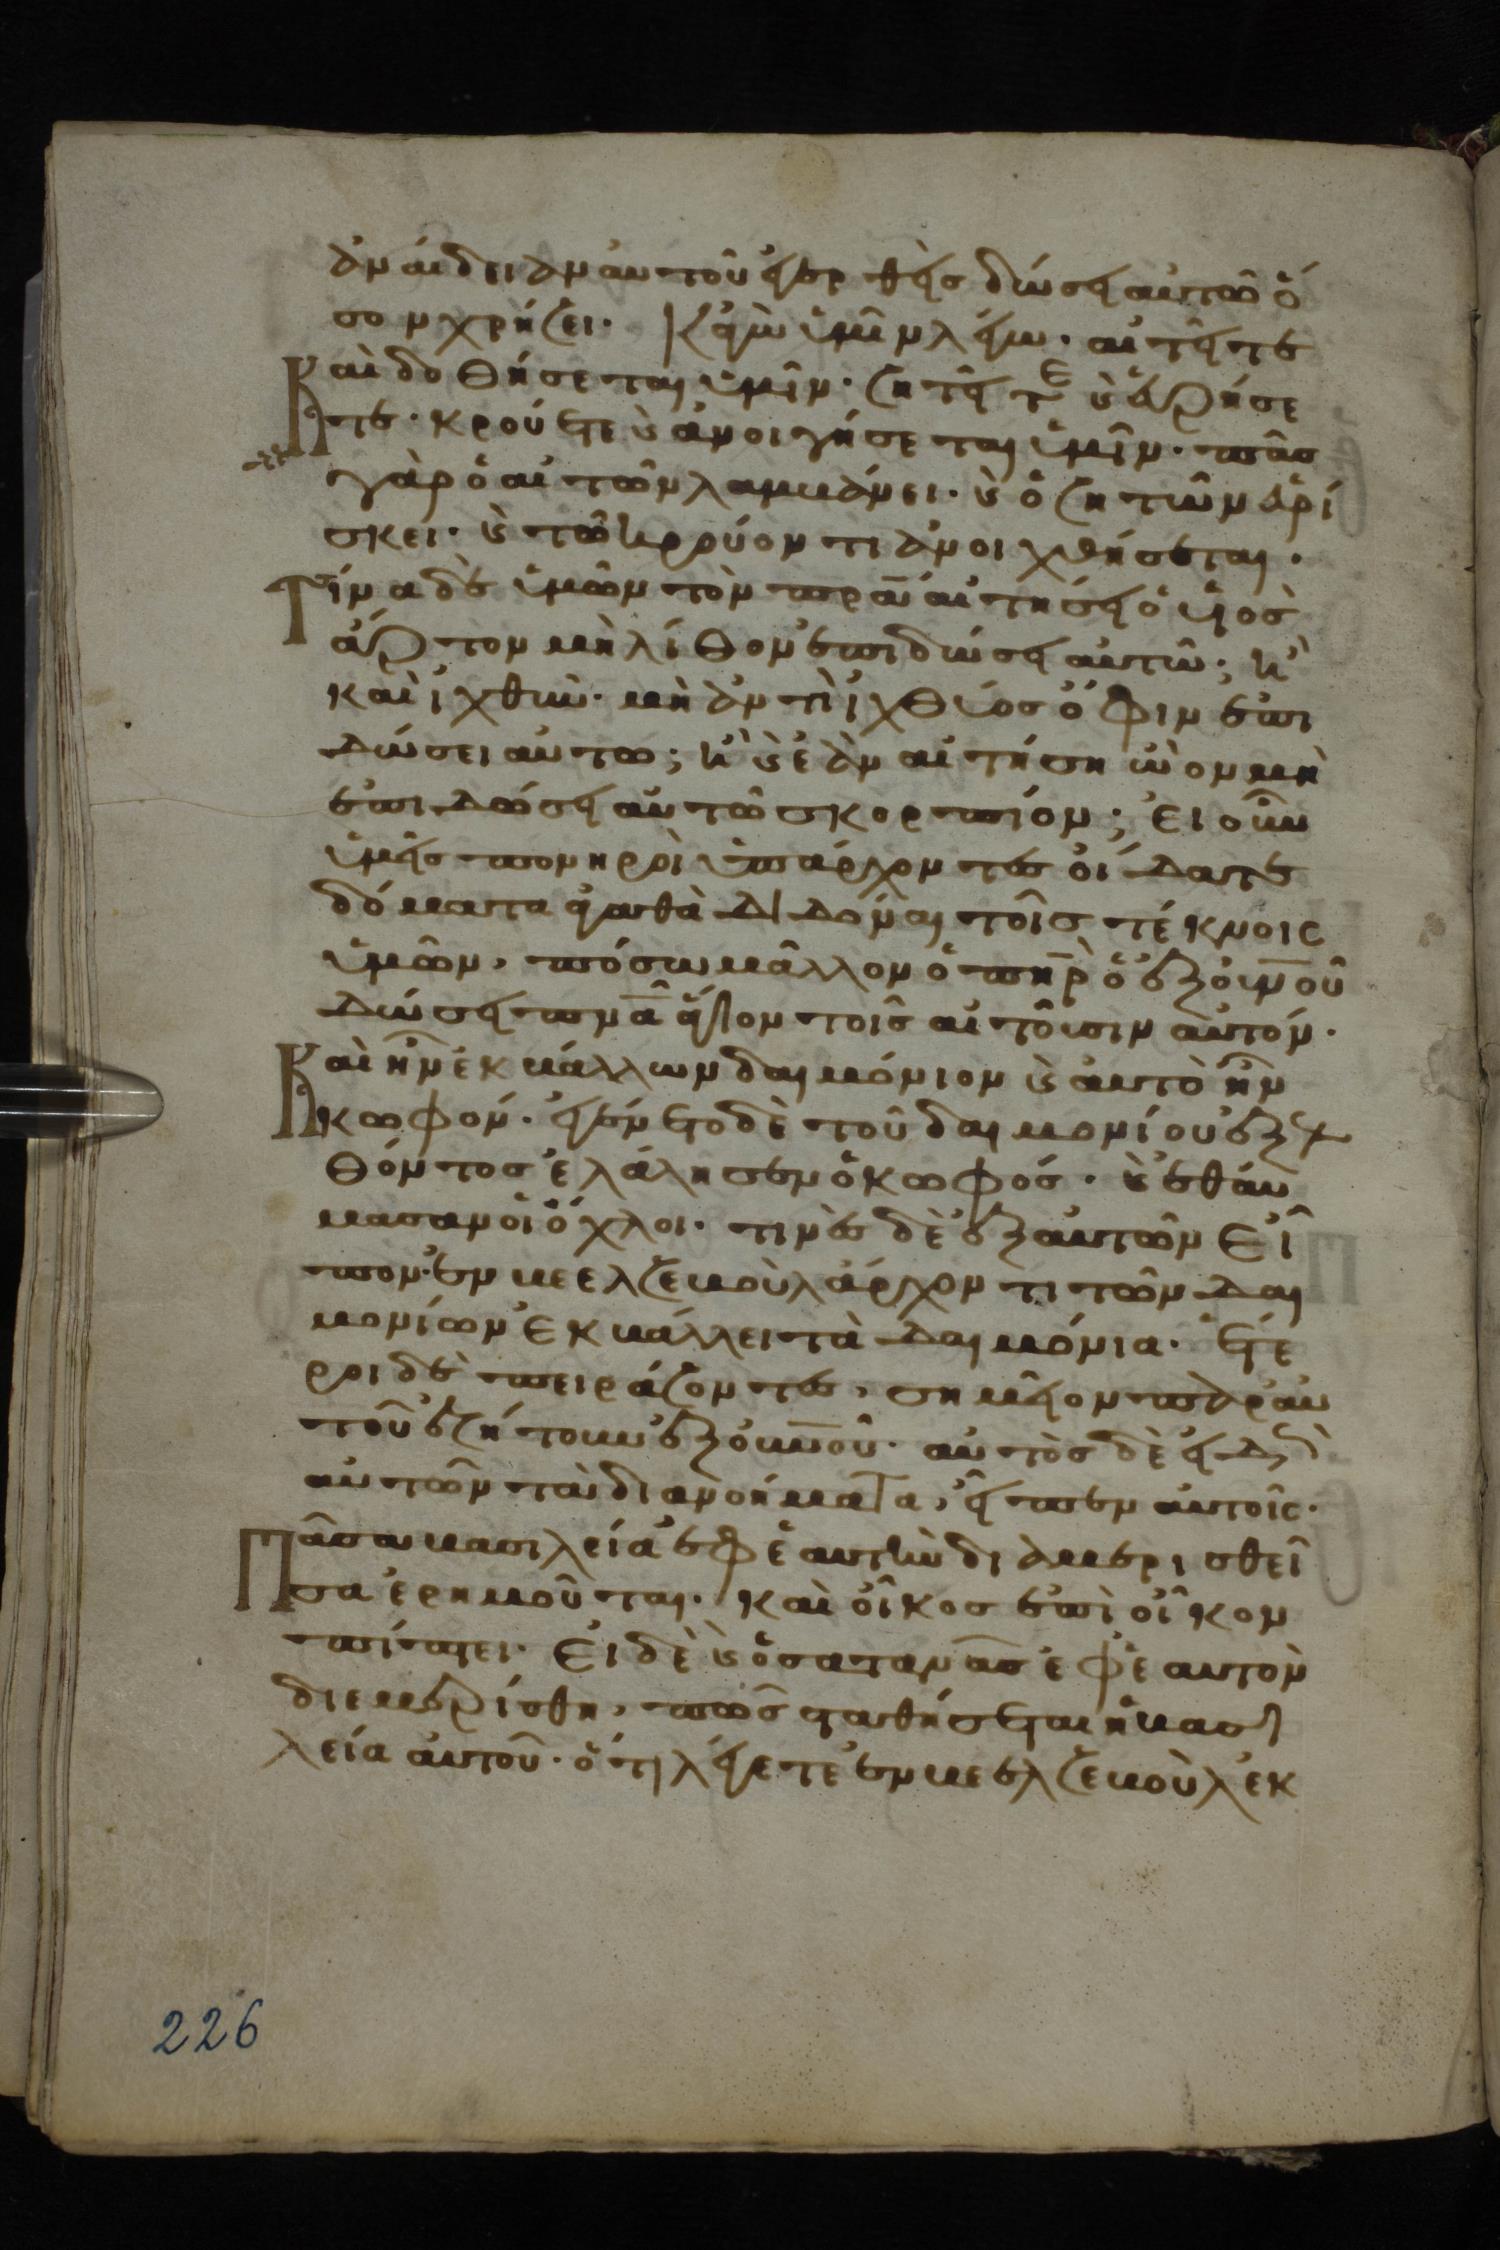 ἀναίδειαν αὐτοῦ ἐγερθεὶς δώσει αὐτῶ ὅ
σον χρήζει. Κἀγὼ ὑμῖν λέγω. αἰτεῖτε
καὶ δοθήσεται ὑμῖν. ζητεῖτε ϗ εὑρήσε
τε. κρούετε ϗ ἀνοιγήσεται ὑμῖν. πᾶσ
γὰρ ὁ αἰτῶν λαμβάνει. ϗ ὁ ζητῶν εὑρί
σκει. ϗ τῶ κρούοντι ἀνοιχθήσεται.
Τίνα δὲ ὑμῶν τὸν πρ̅α αἰτήσει ὁ υἱὸσ
ἄρτον μὴ λίθον ἐπιδώσει αὐτῶ; ἢ
καὶ ἰχθὺν. μὴ ἀντὶ ἰχθύοσ ὄφιν ἐπι
δώσει αὐτῶ; ἢ ϗ ἐὰν αἰτήση ὠὸν μὴ
ἐπιδώσει αὐτῶ σκορπίον; Εἰ οὖν
ὑμεῖς πονηροὶ ὑπάρχοντες οἴδατε
δόματα ἀγαθὰ διδόναι τοῖσ τέκνοις
ὑμῶν, πόσω μᾶλλον ὁ πη̅ρ ὁ ἐξ οὐν̅οῦ
δώσει πν̅α ἅγιον τοῖσ αἰτοῦσιν αὐτόν.
Καὶ ἦν ἐκβάλλων δαιμόνιον ϗ αὐτὸ ἦν
κωφόν. ἐγένετο δὲ τοῦ δαιμονίου ἐξελ
θόντοσ ἐλάλησεν ὁ κωφόσ. ϗ ἐθαύ
μασαν οἱ ὄχλοι. τινὲσ δὲ ἐξ αὐτῶν εἶ
πον. ἐν βεελζεβοὺλ ἄρχοντι τῶν δαι
μονίων ἐκβάλλει τὰ δαιμόνια. ἕτε
ροι δὲ πειράζοντεσ, σημεῖον παρ αὐ
τοῦ ἐζήτουν ἐξ οὐν̅οῦ. αὐτὸσ δὲ εἰδὼσ
αὐτῶν τὰ διανοήματα, εἶπεν αὐτοῖς.
Πᾶσα βασιλεία ἐφ ἑαυτὴν διαμερισθεῖ
σα ἐρημοῦται. καὶ οἶκοσ ἐπὶ οἶκον
πίπτει. Εἰ δὲ ϗ ὁ σατανᾶσ ἐφ ἑαυτὸν
διεμερίσθη, πῶσ σταθήσεται ἡ βασι
λεία αὐτοῦ. ὅτι λέγετε ἐν βεελζεβοὺλ ἐκ
226